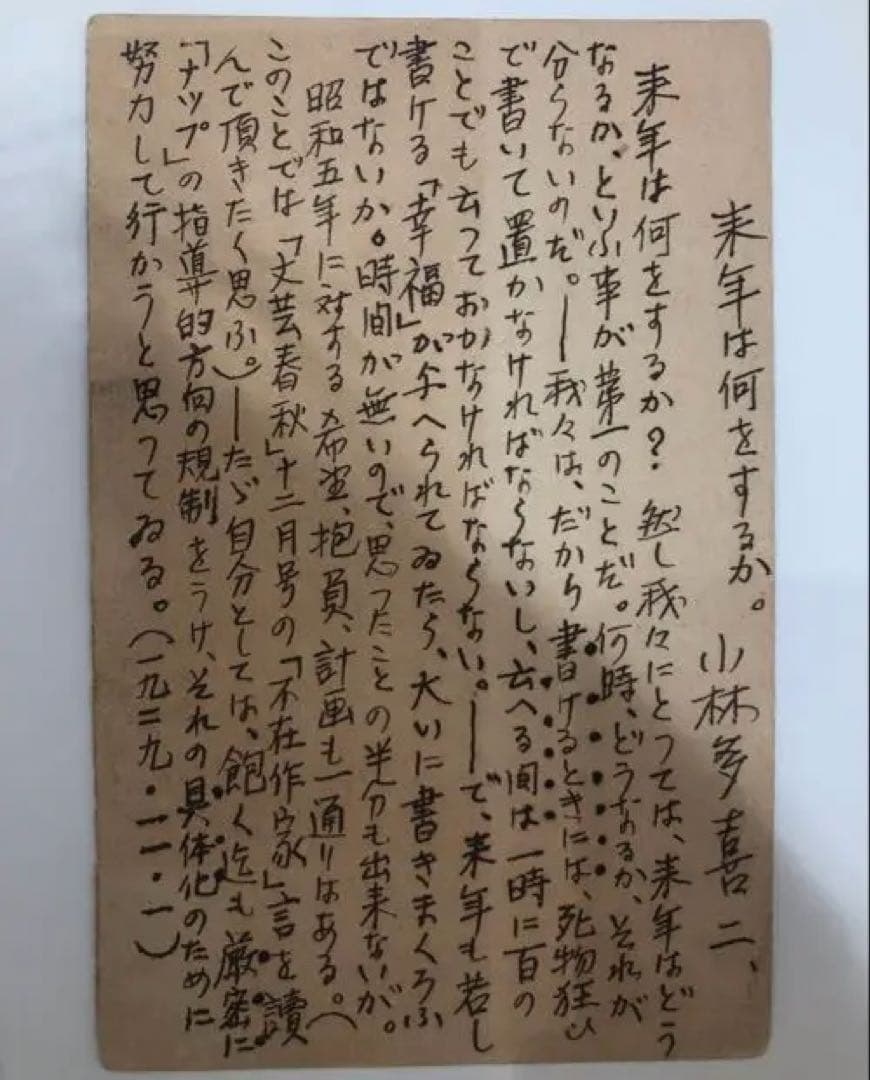 来年は何をするか。
小林多喜二、
来年は何をするか？　然し我々にとつては、来年はどう
なるか、といふ事が第一のことだ。何時、どうなるか、それが
分らないのだ。――我々は、だから書けるときには、死物狂ひ
で書いて置かなければならないし、云へる間は一時に百の
ことでも云つておかなければならない。――で、来年も若し
書ける「幸福」が与へられてゐたら、大いに書きまくろふ
ではないか。時間が無いので、思つたことの半分も出来ないが。
昭和五年に対する希望、抱負、計画も一通りはある。（
このことでは「文芸春秋」十二月号の「不在作家」言を讀
んで頂きたく思ふ。）――たゞ自分としては、飽く迄も厳密に
「ナップ」の指導的方向の規制をうけ、それの具体化のために
努力して行かうと思つてゐる。（一九二九・一一・一）